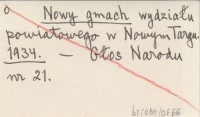 Nowy gmach wydziału
powiatowego w Nowym Targu.
1934. — Głos Narodu
nr 21.